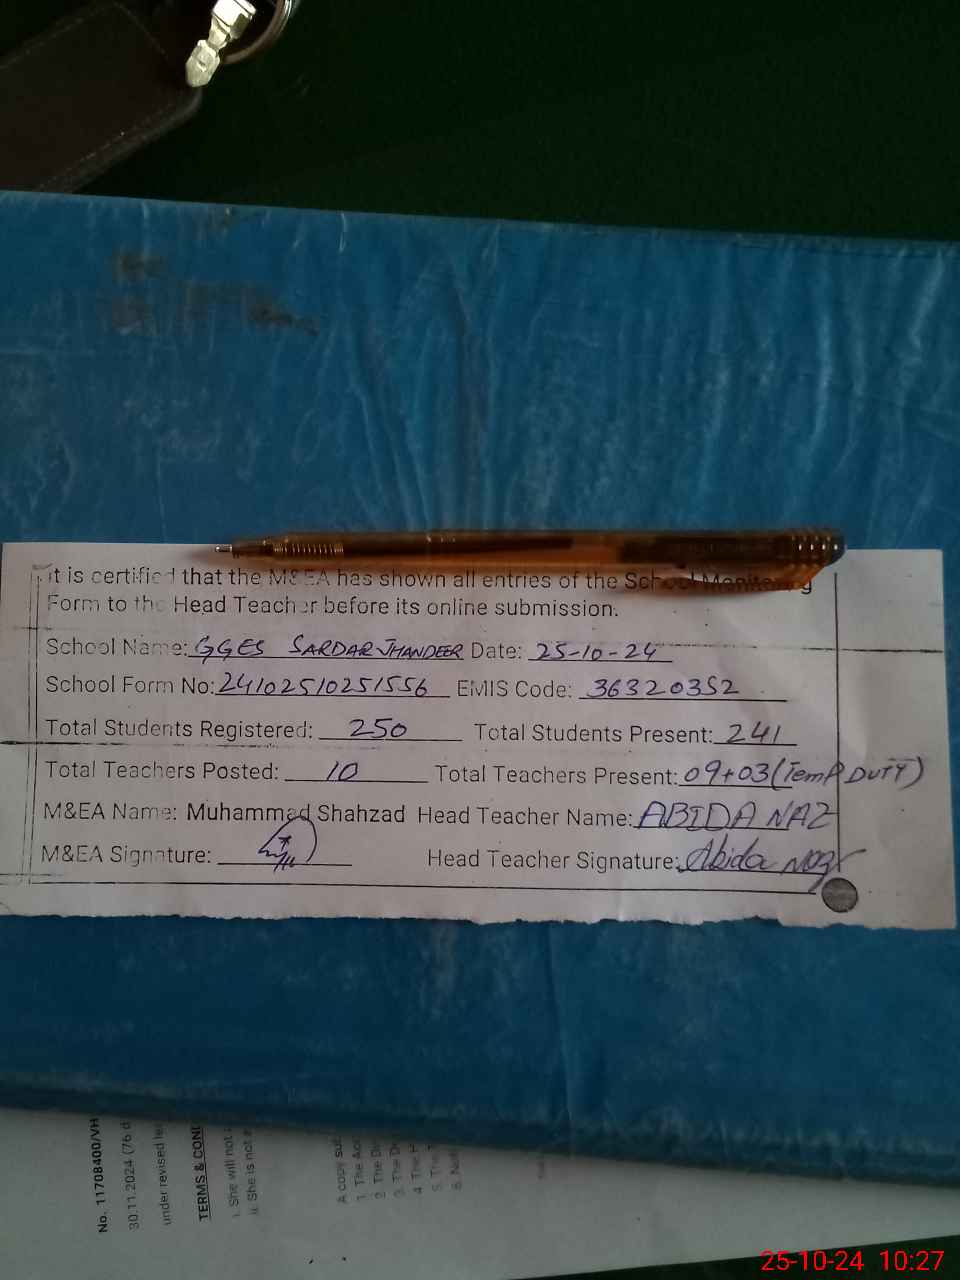 It is certified that the M&EA has shown all entries of the School Monitoring
Form to the Head Teacher before its online submission.
School Name: GGES SARDAR JHANDEER Date: 25-10-24
School Form No: 24102510251556 EMIS Code: 36320352
Total Students Registered: 250 Total Students Present: 241
Total Teachers Posted: 10 Total Teachers Present: 09+03 (Temp DUTY)
M&EA Name: Muhammad Shahzad Head Teacher Name: ABIDA NAZ
M&EA Signature: Head Teacher Signature: Abida Naz
No. 11708400/VH
30.11.2024 (76 d
under revised lea
TERMS & COND
i. She will not
ii. She is not
A copy sub
1. The
2. The
3. The
4. The
5. The
6.
25-10-24 10:27